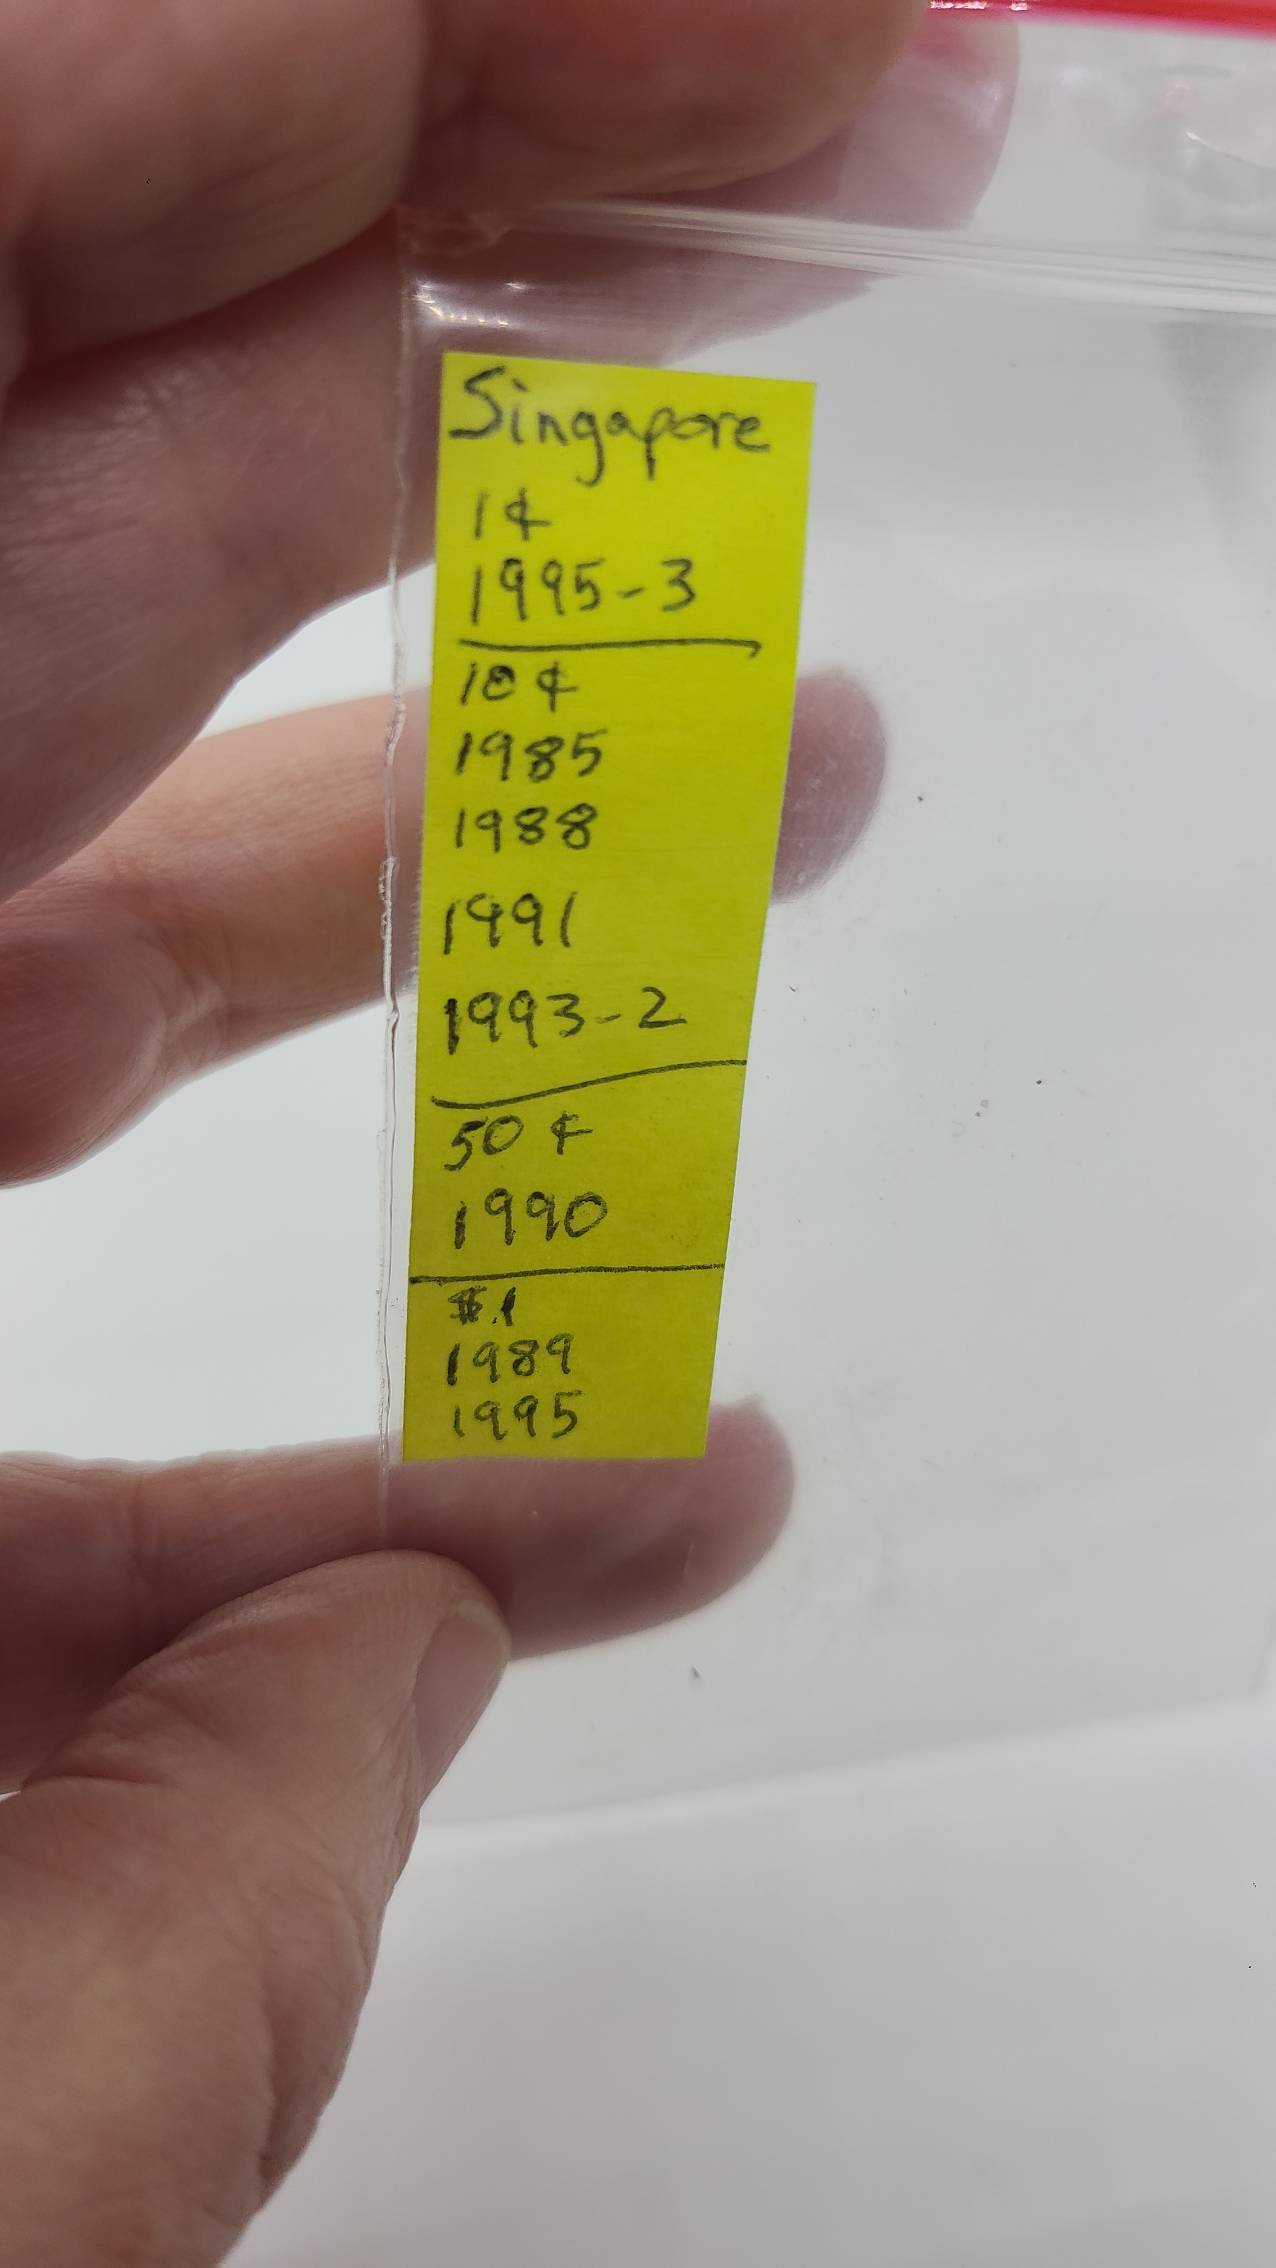 Singapore
1¢
1995-3
10¢
1985
1988
1991
1993-2
50¢
1990
$1
1989
1995